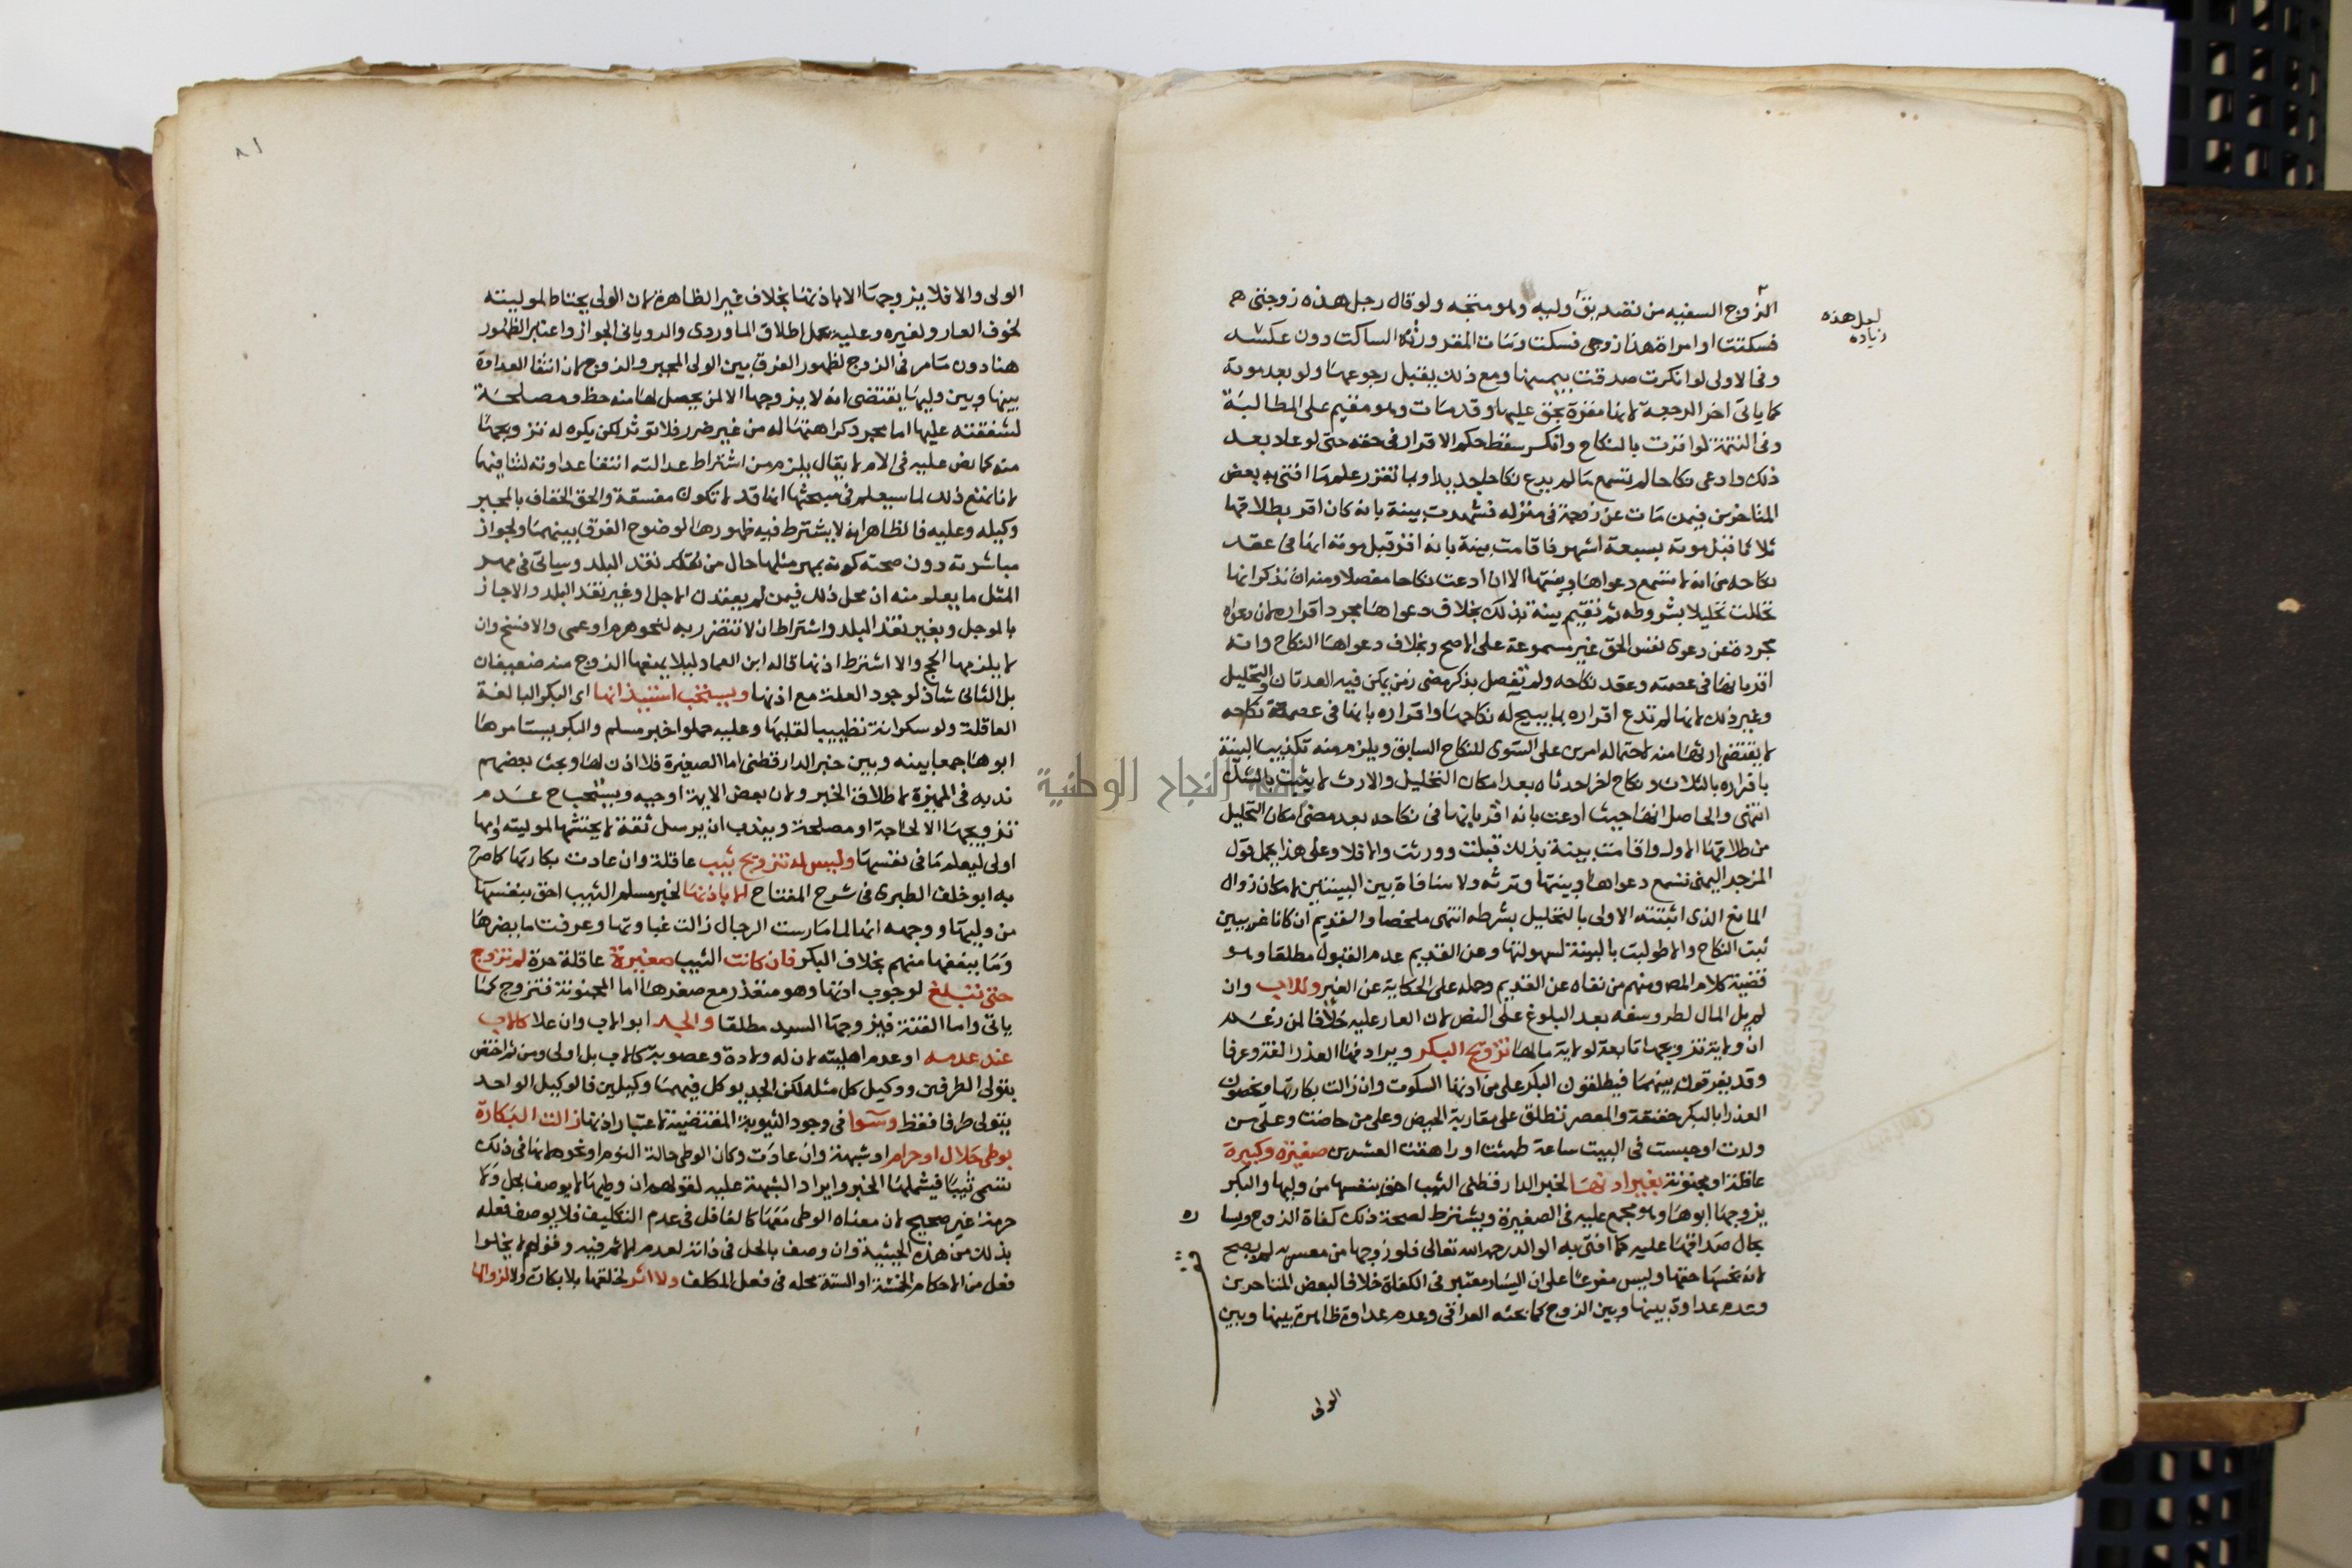 لعل هذه
زياده
الزوج السفيه من تصديق وليه وهو متجه ولو قال رجل هذه زوجتى
فسكتت او امراة هذا زوجى فسكت ومات المقر ورثه الساكت دون عكسه
وفى الاولى لو انكرت صدقت بيمينها ومع ذلك يقبل رجوعها ولو بعد موته
كما ياتى اخر الرجعة لانها مقرة بحق عليها وقد مات وهو مقيم على المطالبة
وفى التتمة لو اقرت بالنكاح وانكر سقط حكم الاقرار فى حقه حتى لو عاد بعد
ذلك وادعى نكاحا لم تسمع ما لم يدع نكاحا جديدا وبما تقرر علم ما افتى به بعض
المتاخرين فيمن مات عن زوجة فى منزله فشهدت بينة بانه كان اقر بطلاقها
ثلاثا قبل موته بسبعة اشهر فاقامت بينة بانه اقر قبل موته انها فى عقد
نكاحه من انه لا تسمع دعواها وبينتها الا ان ادعت نكاحا مفصلا ومنه ان تذكر انها
تحللت تحليلا بشروطه ثم تقيم بينة بذلك بخلاف دعواها مجرد اقراره لان دعواه
مجردة عن دعوى نفس الحق غير مسموعة على الاصح وبخلاف دعواها النكاح وانه
اقر بانها فى عصمته وعقد نكاحه ولم تفصل بذكر مضى زمن يمكن فيه العدتان والتحليل
وغير ذلك لانها لم تدع اقراره بما يبيح له نكاحها واقراره بانها فى عصمة نكاحه
لا يقتضى ارثها منه لاحتماله امرين على السوى للنكاح السابق ويلزم منه تكذيب البينة
باقراره بالثلاث ونكاح اخر احدثاه بعد امكان التحليل والارث لا يثبت بالشك
انتهى والحاصل انها حيث ادعت بانه اقر بانها فى نكاحه بعد مضى امكان التحليل
من طلاقها الاول واقامت بينة بذلك قبلت وورثت والا فلا وعلى هذا يحمل قول
المزجد اليمنى تسمع دعواها وبينتها وترثه ولا منافاة بين البينتين لامكان زوال
المانع الذى اثبتته الاولى بالتحليل بشرطه انتهى ملخصا والقديم ان كانا غريبين
ثبت النكاح والا طولبت بالبينة لسهولتها وعن القديم عدم القبول مطلقا وهو
قضية كلام المص ومنهم من نفاه عن القديم وحمله على الحكاية عن الغير وللاب وان
لم يل المال لطرو سفه بعد البلوغ على النص لان العار عليه خلافا لمن زعم
ان ولاية تزويجها تابعة لولاية مالها تزويج البكر ويرادفها العذرا لغة وعرفا
وقد يفرقون بينهما فيطلقون البكر على من اذنها السكوت وان زالت بكارتها ويخصون
العذرا بالبكر حقيقة والمعصر تطلق على مقاربة الحيض وعلى من حاضت وعلى من
ولدت او حبست فى البيت ساعة طمثت او راهقت العشرين صغيرة وكبيرة
عاقلة او مجنونة بغير اذنها لخبر الدارقطنى الثيب احق بنفسها من وليها والبكر
يزوجها ابوها وهو مجمع عليه فى الصغيرة ويشترط لصحة ذلك كفاة الزوج ويسا
ره
بحال صداقها عليه كما افتى به الوالد رحمه الله تعالى فلو زوجها من معسر به لم يصح
لانه بخسها حقها وليس مفرعا على ان اليسار معتبر فى الكفاة خلافا لبعض المتاخرين
وعدم عداوة بينها وبين الزوج كما بحثه العراقى وعدم عداوة ظاهرة بينها وبين
الولى
٨١
الولى والا فلا يزوجها الا باذنها بخلاف غير الظاهرة لان الولى يحتاط لموليته
لخوف العار ولغيره وعليه يحمل اطلاق الماوردى والرويانى الجواز واعتبر الظهور
هنا دون ما مر فى الزوج لظهور الفرق بين الولى المجبر والزوج لان انتفا العداوة
بينها وبين وليها يقتضى انه لا يزوجها الا لمن يحصل لها منه حظ ومصلحة
لشفقته عليها اما مجرد كراهتها له من غير ضرر فلا تؤثر لكن يكره له تزويجها
منه كما نص عليه فى الام لا يقال يلزم من اشتراط عدالته انتفا عداوته لتنافيهما
لانا نمنع ذلك لما سيعلم فى مبحثها انها قد لا تكون مفسقة والحق الخفاف بالمجبر
وكيله وعليه فالظاهر انه لا يشترط فيه ظهورها لوضوح الفرق بينهما ولجواز
مباشرته دون صحته كونه بمهر مثلها حال من نقد البلد وسياتى فى مهر
المثل ما يعلم منه ان محل ذلك فيمن لم يعتدن الاجل او غير نقد البلد والا جاز
بالموجل وبغير نقد البلد واشتراط ان لا تتضرر به لنحو هرم او عمى والا فسخ وان
لا يلزمها الحج والا اشترط اذنها قاله ابن العماد ليلا يمنعها الزوج منه ضعيفان
بل الثانى شاذ لوجود العلة مع اذنها ويستحب استيذانها اى البكر البالغة
العاقلة ولو سكرانة تطييبا لقلبها وعليه حملوا خبر مسلم والبكر يستامرها
ابوها جمعا بينه وبين خبر الدارقطنى اما الصغيرة فلا اذن لها وبحث بعضهم
ندبه فى المميزة لاطلاق الخبر ولان بعض الايمة اوجبه ويستحب عدم
تزويجها الا لحاجة او مصلحة ويندب ان يرسل ثقة لا يحتشمها لموليته وامها
اولى ليعلم ما فى نفسها وليس له تزويج ثيب عاقلة وان عادت بكارتها كما صرح
به ابو خلف الطبرى فى شرح المفتاح الا باذنها لخبر مسلم الثيب احق بنفسها
من وليها ووجهه انها لما مارست الرجال زالت غباوتها وعرفت ما يضرها
وما ينفعها منهم بخلاف البكر فان كانت الثيب صغيرة عاقلة حرة لم تزوج
حتى تبلغ لوجوب اذنها وهو متعذر مع صغرها اما المجنونة فتزوج كما
ياتى واما القنة فيزوجها السيد مطلقا والجد ابو الاب وان علا كالاب
عند عدمه او عدم اهليته لان له ولادة وعصوبة كالاب بل اولى ومن ثم اختص
بتولى الطرفين ووكيل كل مثله لكن الجد يوكل فيهما وكيلين فالوكيل الواحد
يتولى طرفا فقط وسوا فى وجود الثيوبة المقتضية لاعتبار اذنها زالت البكارة
بوطى حلال او حرام او شبهة وان عادت وكان الوطى حالة النوم او نحوه لانها فى ذلك
تسمى ثيبا فيشملها الخبر وايراد الشبهة عليه لقولهم ان وطيها لا يوصف بحل ولا
حرمة غير صحيح لان معناه الوطى معها كالغافل فى عدم التكليف فلا يوصف فعله
بذلك من هذه الحيثية وان وصف بالحل فى ذاته لعدم الاثم فيه وقولهم لا يخلوا
فعل من الاحكام الخمسة او الستة محله فى فعل المكلف ولا اثر لخلقها بلا بكارة ولا لزوالها